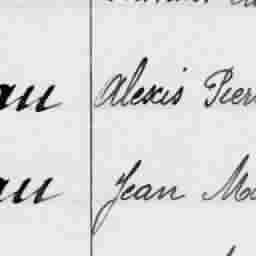 au Alexis Pier
au Jean Ma